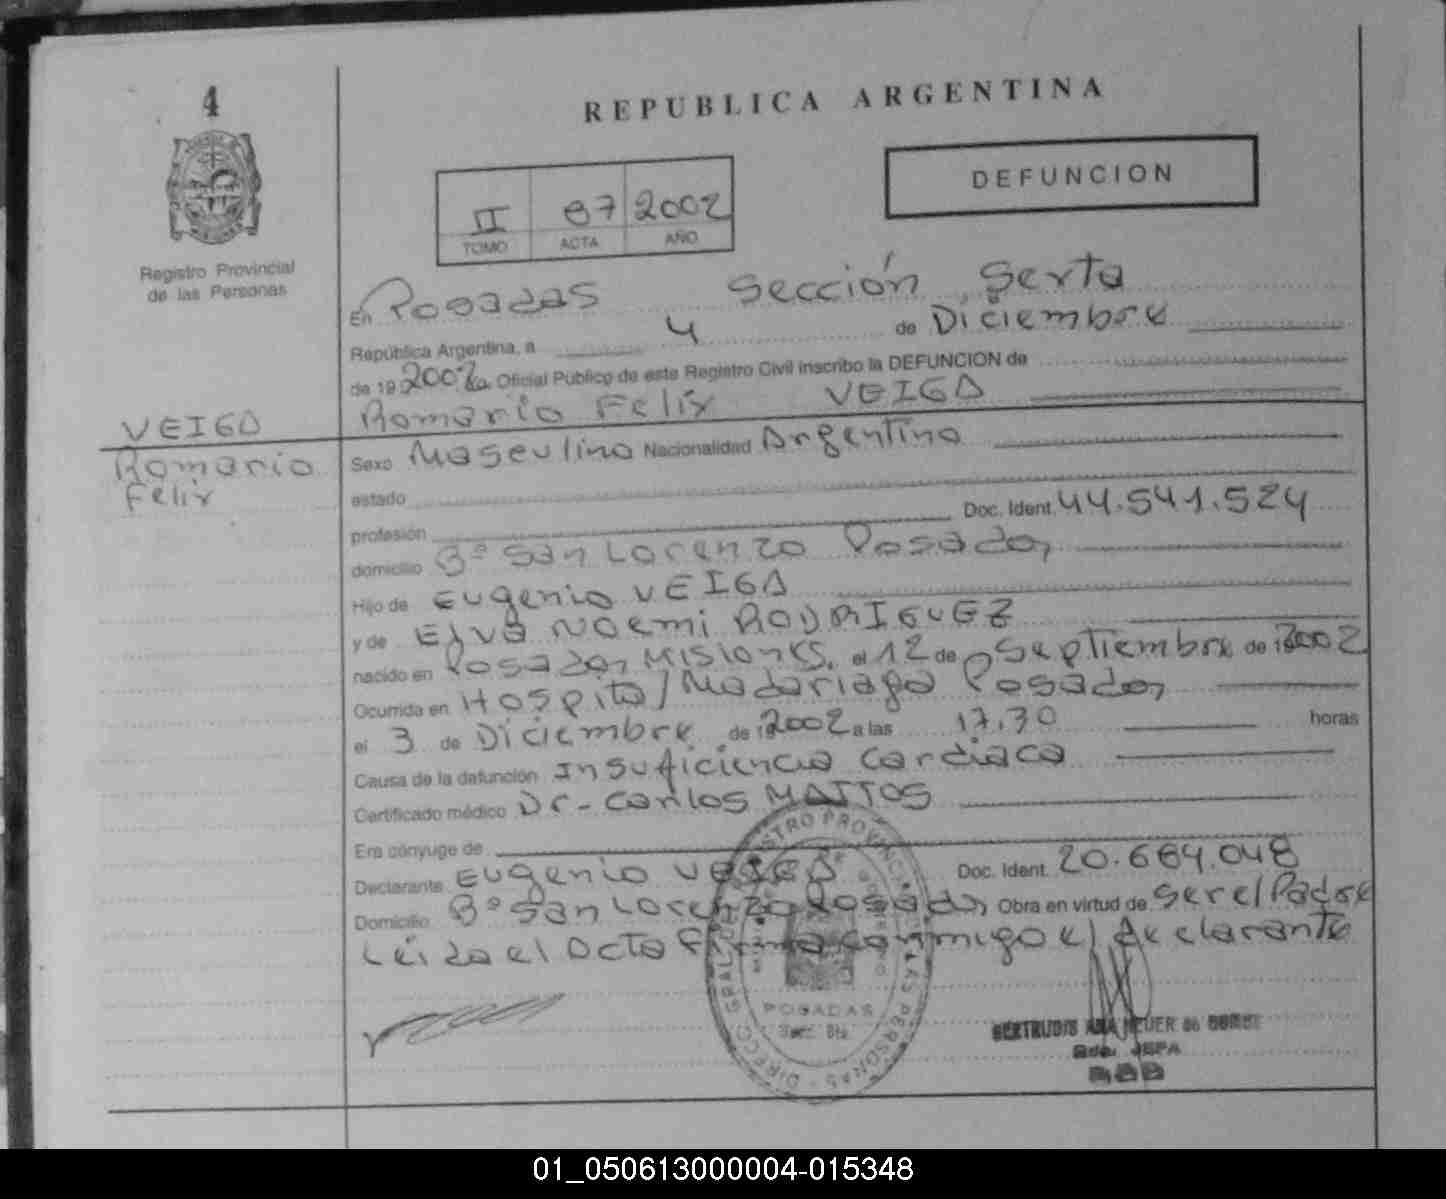 4
REPUBLICA ARGENTINA
DEFUNCION
II 87 2002
TOMO ACTA AÑO
Registro Provincial
de las Personas
En Posadas Sección Sexta
República Argentina, a 4 de Diciembre
de 19 2002 Oficial Público de este Registro Civil inscribo la DEFUNCION de
Romario Felix VEIGA
VEIGA
Romario
Felix
Sexo Masculino Nacionalidad Argentino
estado
profesión Doc. Ident. 44.541.524
domicilio Bº San Lorenzo Posadas
Hijo de Eugenio VEIGA
y de Elva Noemi RODRIGUEZ
nacido en Posadas, Misiones, el 12 de Septiembre de 2002
Ocurrida en Hospital Madariaga Posadas
el 3 de Diciembre de 2002 a las 17,30 horas
Causa de la defunción Insuficiencia Cardiaca
Certificado médico Dr. Carlos MATTOS
Era cónyuge de
Declarante Eugenio VEIGA Doc. Ident. 20.664.048
Domicilio Bº San Lorenzo Posadas Obra en virtud de Ser el Padre
Leida el Acta Firma conmigo el declarante
POSADAS
GERTRUDIS ANA
01_050613000004-015348